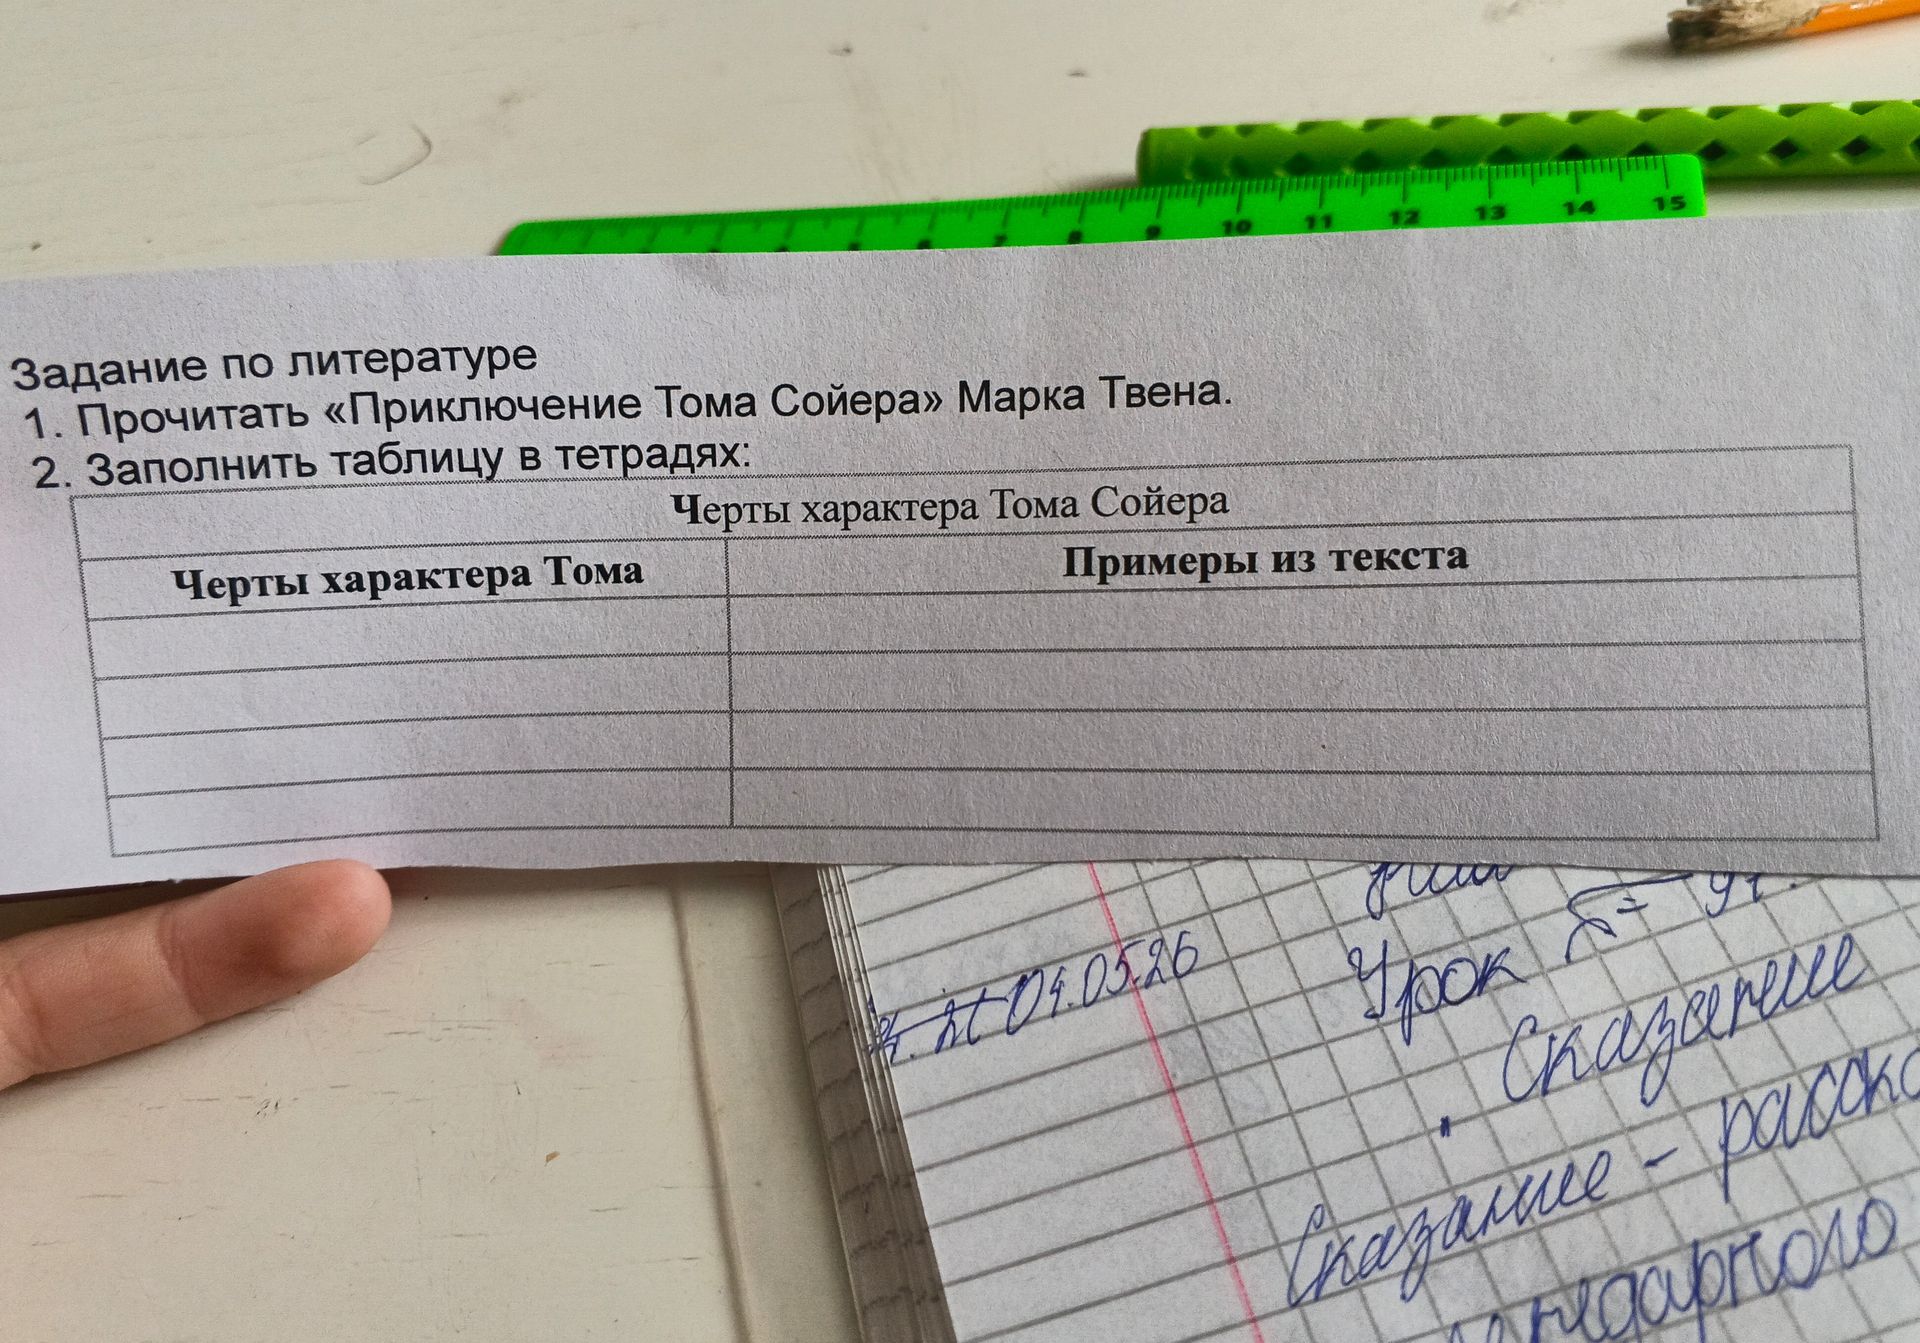 10 11 12 13 14 15
Задание по литературе
1. Прочитать «Приключение Тома Сойера» Марка Твена.
2. Заполнить таблицу в тетрадях:
Черты характера Тома Сойера
Черты характера Тома Примеры из текста
04.05.26
Урок
Сказание
Сказание - расска